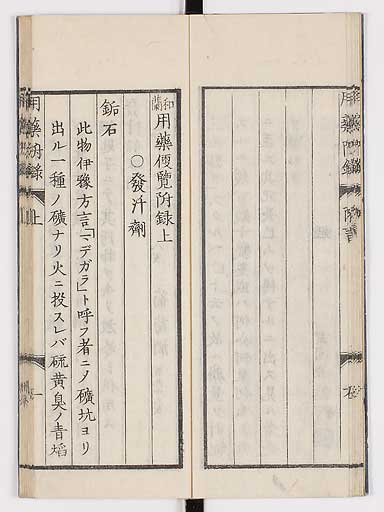 和蘭用藥便覧附録上
〇發汗劑
鉐石
此物伊豫方言「マデガラ」ト呼フ者ニノ礦坑ヨリ
出ル一種ノ礦ナリ火ニ投スレバ硫黄臭ノ青焰
用藥附録
上
一